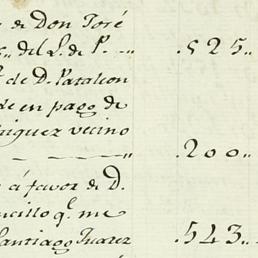 de Don José
del S. de P. .525..
de D. Pataleon
de en pago de
riguez vecino
.200..
a favor de D.
ncillo q.e me
Santiago Juarez .543..